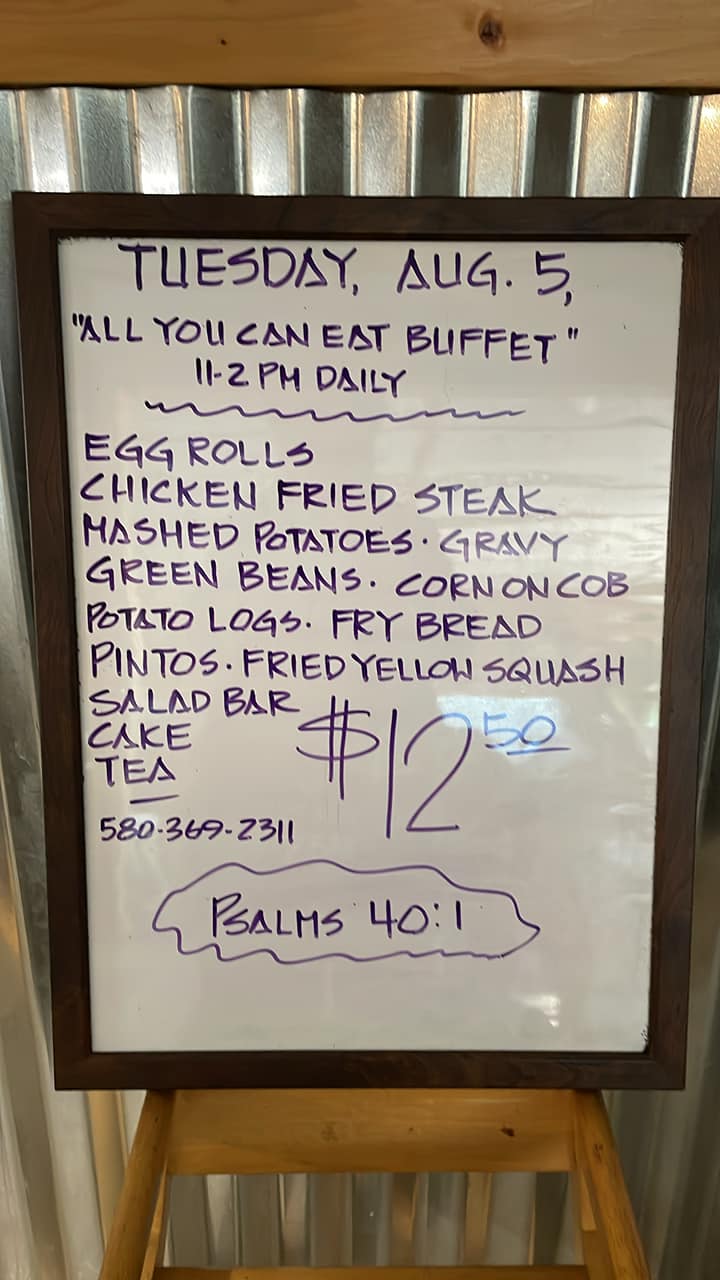 TUESDAY, AUG. 5,
"ALL YOU CAN EAT BUFFET"
11-2 PM DAILY
EGG ROLLS
CHICKEN FRIED STEAK
MASHED POTATOES · GRAVY
GREEN BEANS · CORN ON COB
POTATO LOGS · FRY BREAD
PINTOS · FRIED YELLOW SQUASH
SALAD BAR
CAKE
TEA
$12 50
580-369-2311
PSALMS 40:1